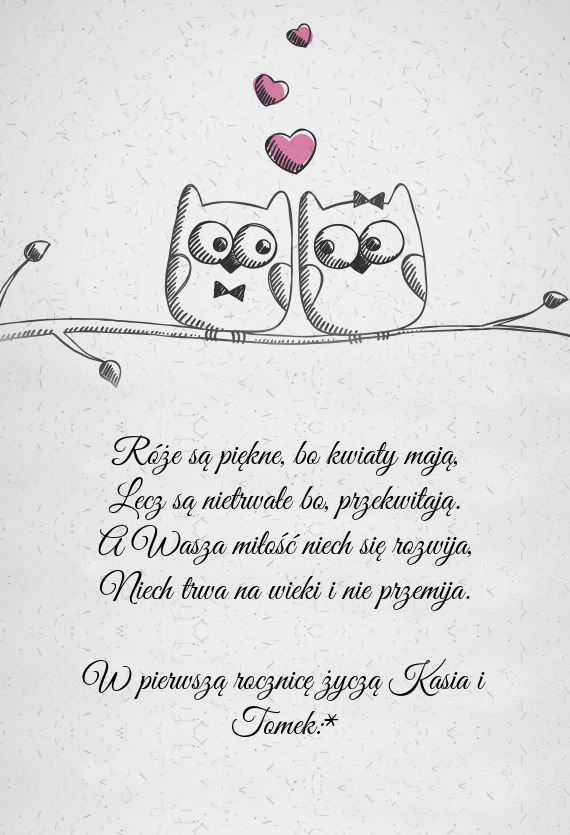 Róże są piękne, bo kwiaty mają,
Lecz są nietrwałe bo, przekwitają.
A Wasza miłość niech się rozwija,
Niech trwa na wieki i nie przemija.
W pierwszą rocznicę życzą Kasia i
Tomek:*